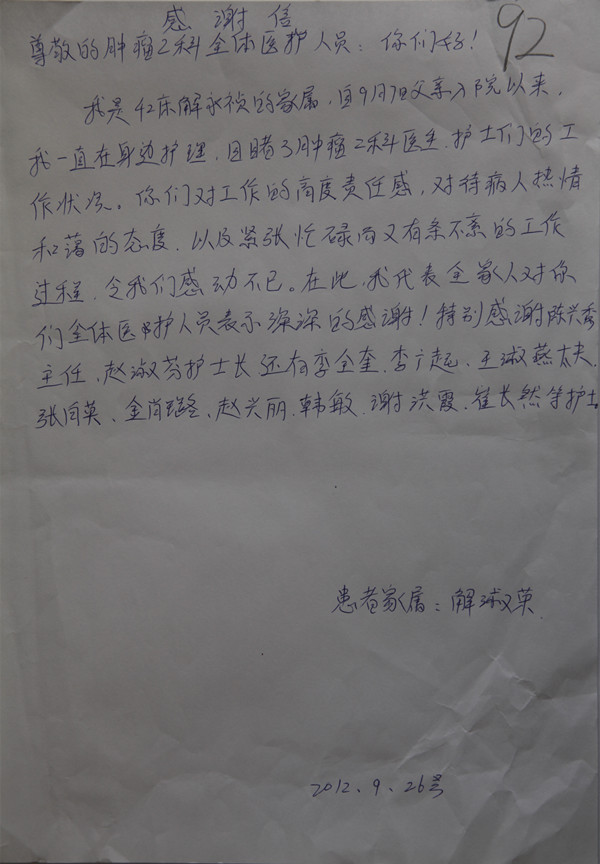 感谢信
92
尊敬的肿瘤2科全体医护人员：你们好！
我是42床解永祯的家属，自9月7日父亲入院以来，
我一直在身边护理，目睹了肿瘤二科医生、护士们的工
作状况。你们对工作的高度责任感，对待病人热情
和蔼的态度，以及紧张忙碌而又有条不紊的工作
过程，令我们感动不已。在此，我代表全家人对你
们全体医护人员表示深深的感谢！特别感谢陈兴秀
主任，赵淑芬护士长还有李全奎、李广起、王淑燕大夫，
张月英、金肖、赵兴丽、韩敏、谢洪霞、崔长然等护士
患者家属：解淑英
2012.9.26号